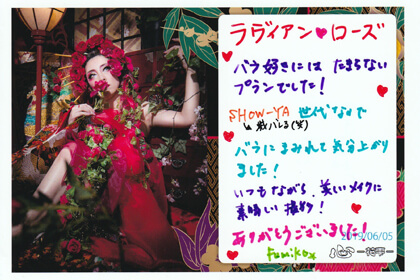 ラヴィアン♥ローズ
バラ好きには たまらない
プランでした!
SHOW-YA 世代なので
↳歳バレる(笑)
バラにまみれて気分上がり
ました!
いつもながら、美しいメイクに
素晴しい撮影!
ありがとうございました!
2019/06/05
fumiko